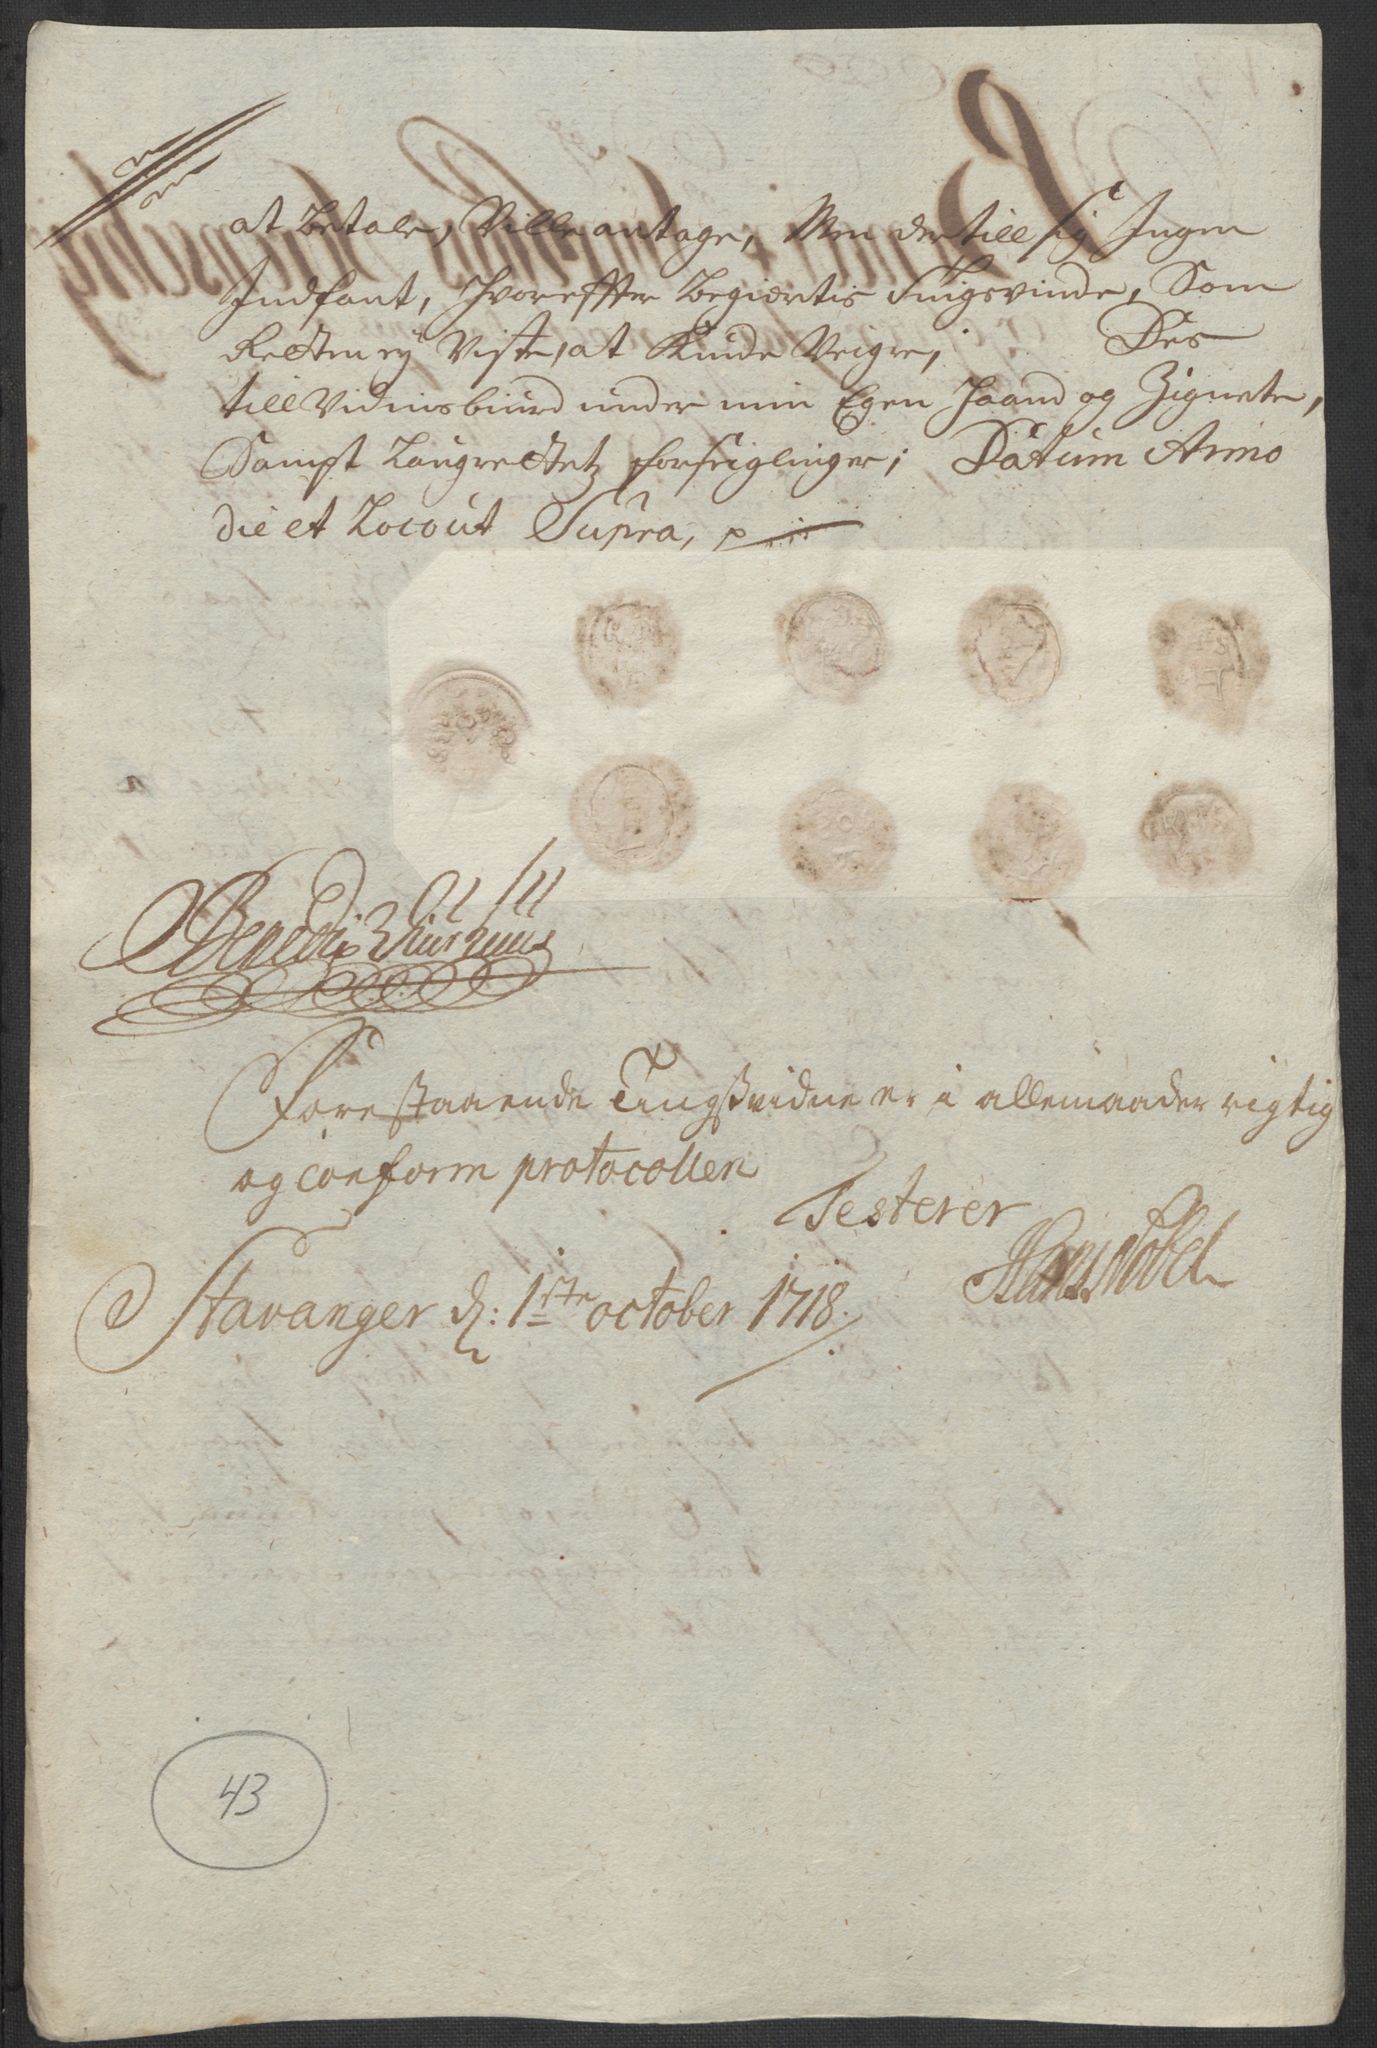 at betale, Ville antage, Men der till sig Ingen
Indfant, Hvoreffter begiertis Tingsvinde, Som
Retten ej Viste, at Kunde Veigre, Des
till Vidnisbiurd under min Egen Haand og Zignete,
Sampt Laugrettetz forseiglinger; Datum Anno
die et Loco ut Supra, p
Forestaaende Tingßvidne er i allemaader rigtig
og conform protocollen
Testerer
Hans Nobel
Stavanger d: 1ste october 1718.
43